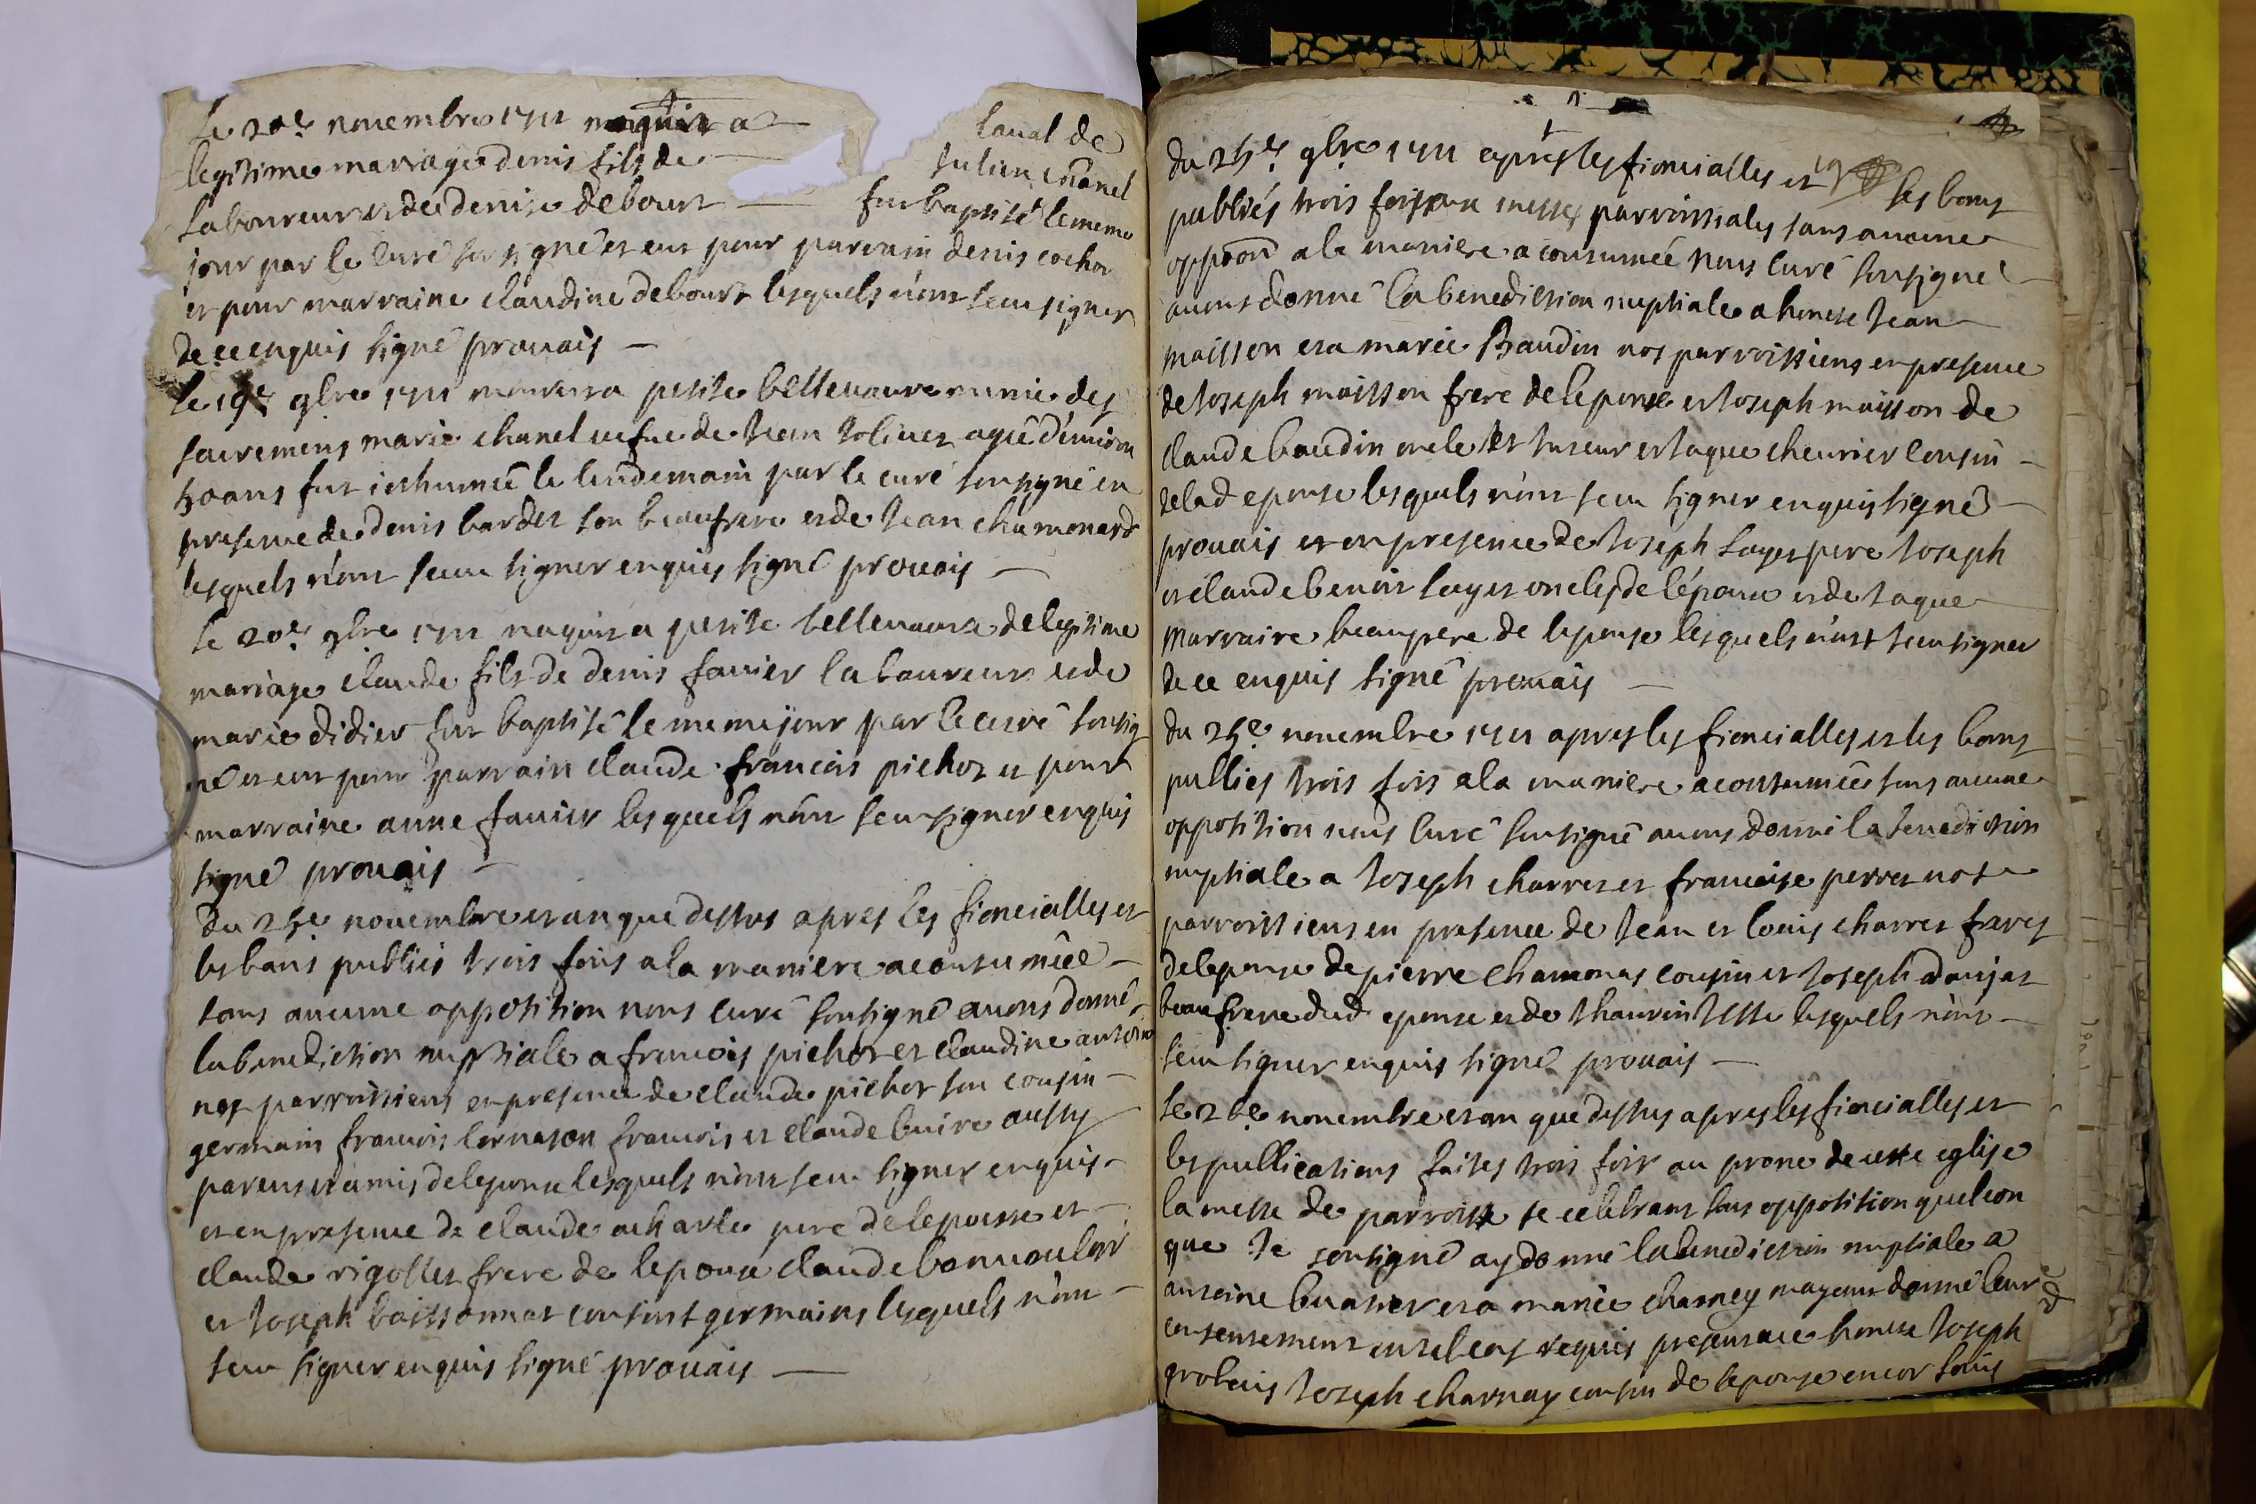 Le 20e. novembre 1711 naquit a
laual de
legitime mariage denis fils de
Julien chanel
laboureur et de denise debourt
fut baptisé le meme
jour par le curé soussigné et eut pour parrain denis cochor
et pour marraine claudine debourt lesquels n'ont sceu signer
de ce enquis signé prouais
Le 19e 9bre 1711 mourut a petite bellevaure munie des
sacremens marie chanel vefue de Jean Jolivet agée d'environ
50 ans fut inhumée le lendemain par le curé sousigné en
presence de denis bardet son beaufrere et de Jean chamonard
lesquels n'ont sceu signer enquis signé prouais
le 20e. 9bre 1711 naquit a petite bellevaura de legitime
mariage claude fils de denis favier laboureur et de
marie didier fut baptisé le meme jour par le curé sousig
né et eut pour parrain claude francois pichot et pour
marraine anne favier lesquels n'ont sceu signer enquis
signé prouais
du 25e novembre et an que dessus apres les fiencialles et
les bans publiés trois fois a la maniere acoutumée
sans aucune opposition nous curé sousigné avons donné
la benediction nuptiale a francois pichot et claudine
nos parroissiens en presence de claude pichot son cousin
germain francois francois et claude buire aussy
parens et amis de lepoux lesquels n'ont sceu signer enquis
et en presence de claude pere de lepousse et
claude rigollet frere de lepouse claude bonnouloir
et Joseph boissonnat cousins germains lesquels n'ont
sceu signer enquis signé prouais
du 25e. 9bre 1711 apres les fiencialles et les bans
publiés trois fois aux messes parroissiales sans aucune
oppoon a la maniere acoutumée nous curé sousigné
avons donné la benediction nuptiale a honete Jean
maisson et a marie Baudin nos parroissiens en presence
de Joseph maisson frere de lepoux et Joseph maisson de
claude baudin oncle et tuteur et Jaque cheurier cousin
de lad epouse lesquels n'ont sceu signer enquis signé
prouais et en presence de Joseph layer pere Joseph
et claude benoit layer oncles de l'époux et de Jaque
marraire beaupere de lepouse lesquels n'ont sceu signer
de ce enquis signé prouais
du 25e novembre 1711 apres les fiencialles et les bans
publiés trois fois a la maniere acoutumée sans aucune
opposition nous curé sousigné avons donné la benediction
nuptiale a Joseph charret et francoise perret nos
parroissiens en presence de Jean et louis charret freres
de lepoux de pierre chammas cousin et Joseph
beaufrere dud epoux et de lesquels n'ont
sceu signer enquis signé prouais
Le 26e novembre et an que dessus apres les fiencialles et
les publications faites trois fois au prone de cette eglise
la messe de parroisse se celebrant sans opposition quelcon
que Je sousigné ay donné la benediction nuptiale a
antoine et a marie charney mayeur donné leur
consentement en tel cas requis presens a ce honete Joseph
Joseph charnay cousin de lepouse encor louis